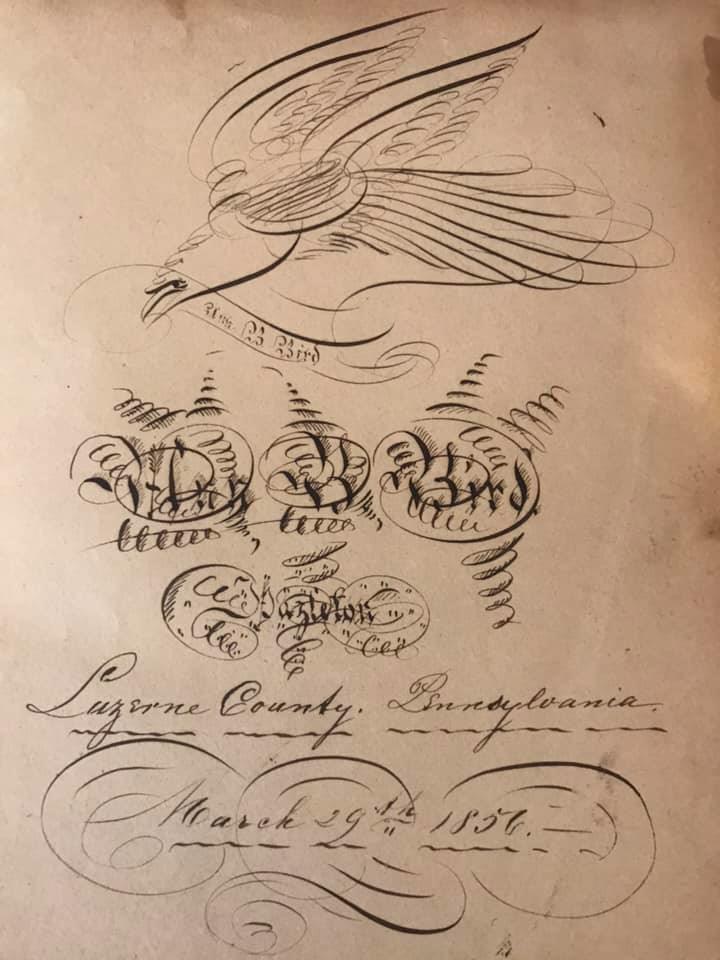 B. Bird
B Bird.
Hazleton
Luzerne County. Pennsylvania.
March 29th 1856.